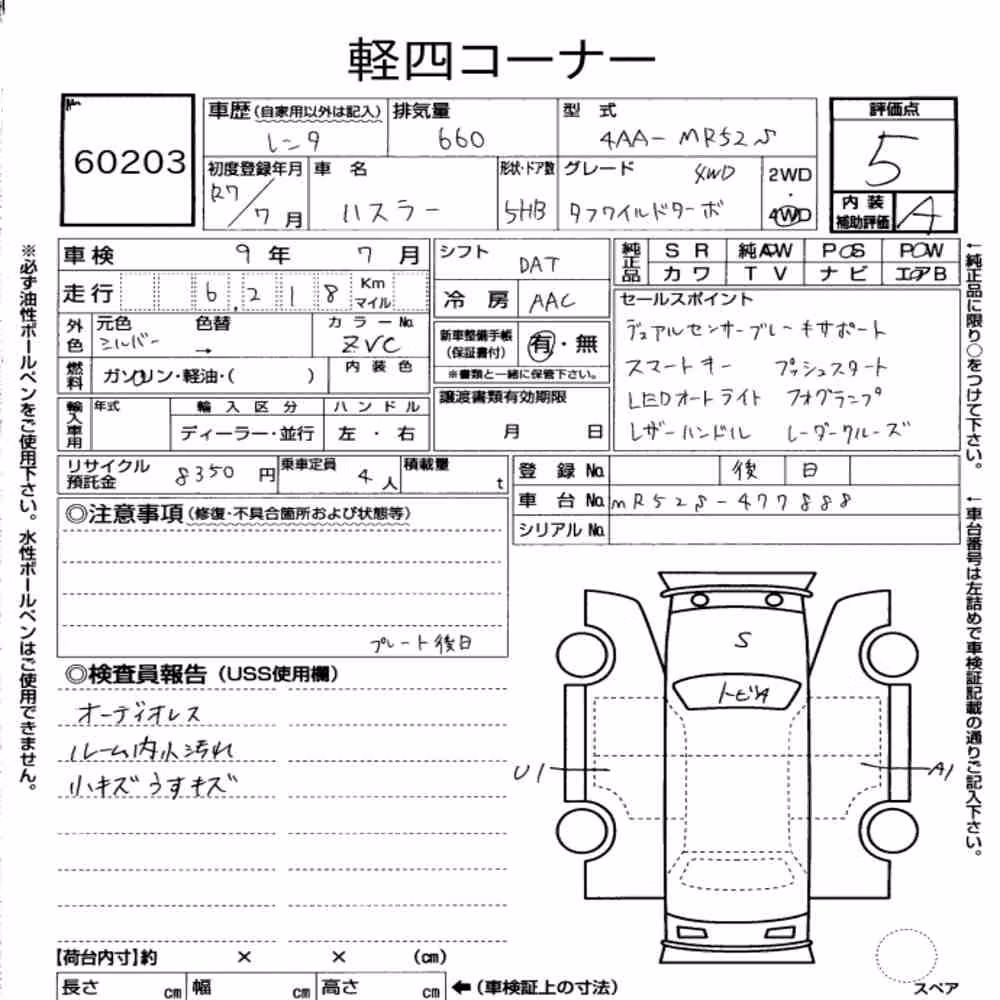 軽四コーナー
60203
車歴(自家用以外は記入) 排気量 型 式 評価点
レンタ 660 4AA-MR52S 5
初度登録年月 車 名 形状・ドア数 グレード 4WD 2WD・4WD
R7/7月 ハスラー 5HB タフワイルドターボ
内装補助評価 A
車検 9年 7月 シフト DAT 純正品 SR 純AW PS PW
走行 6,218 Km マイル カワ TV ナビ エアB
冷房 AAC
外色 元色 シルバー 色替 → カラーNo. ZVC
燃料 ガソリン・軽油・( ) 内装色
新車整備手帳(保証書付) 有・無
※書類と一緒に保管下さい。
輸入車用 年式 輸入区分 ハンドル
ディーラー・並行 左・右
譲渡書類有効期限
月 日
セールスポイント
デュアルセンサーブレーキサポート
スマートキー プッシュスタート
LEDオートライト フォグランプ
レザーハンドル レーダークルーズ
リサイクル預託金 8350円 乗車定員 4人 積載量 t
登録No. 後日
車台No. MR52S-477888
シリアルNo.
◎注意事項(修復・不具合箇所および状態等)
プレート後日
◎検査員報告(USS使用欄)
オーディオレス
ルーム内小汚れ
小キズ うすキズ
S
トビA
U1
A1
【荷台内寸】約 × × (cm)
長さ cm 幅 cm 高さ cm ←(車検証上の寸法)
スペア
※必ず油性ボールペンをご使用下さい。水性ボールペンはご使用できません。
←純正品に限り○をつけて下さい。
←車台番号は左詰めで車検証記載の通りご記入下さい。